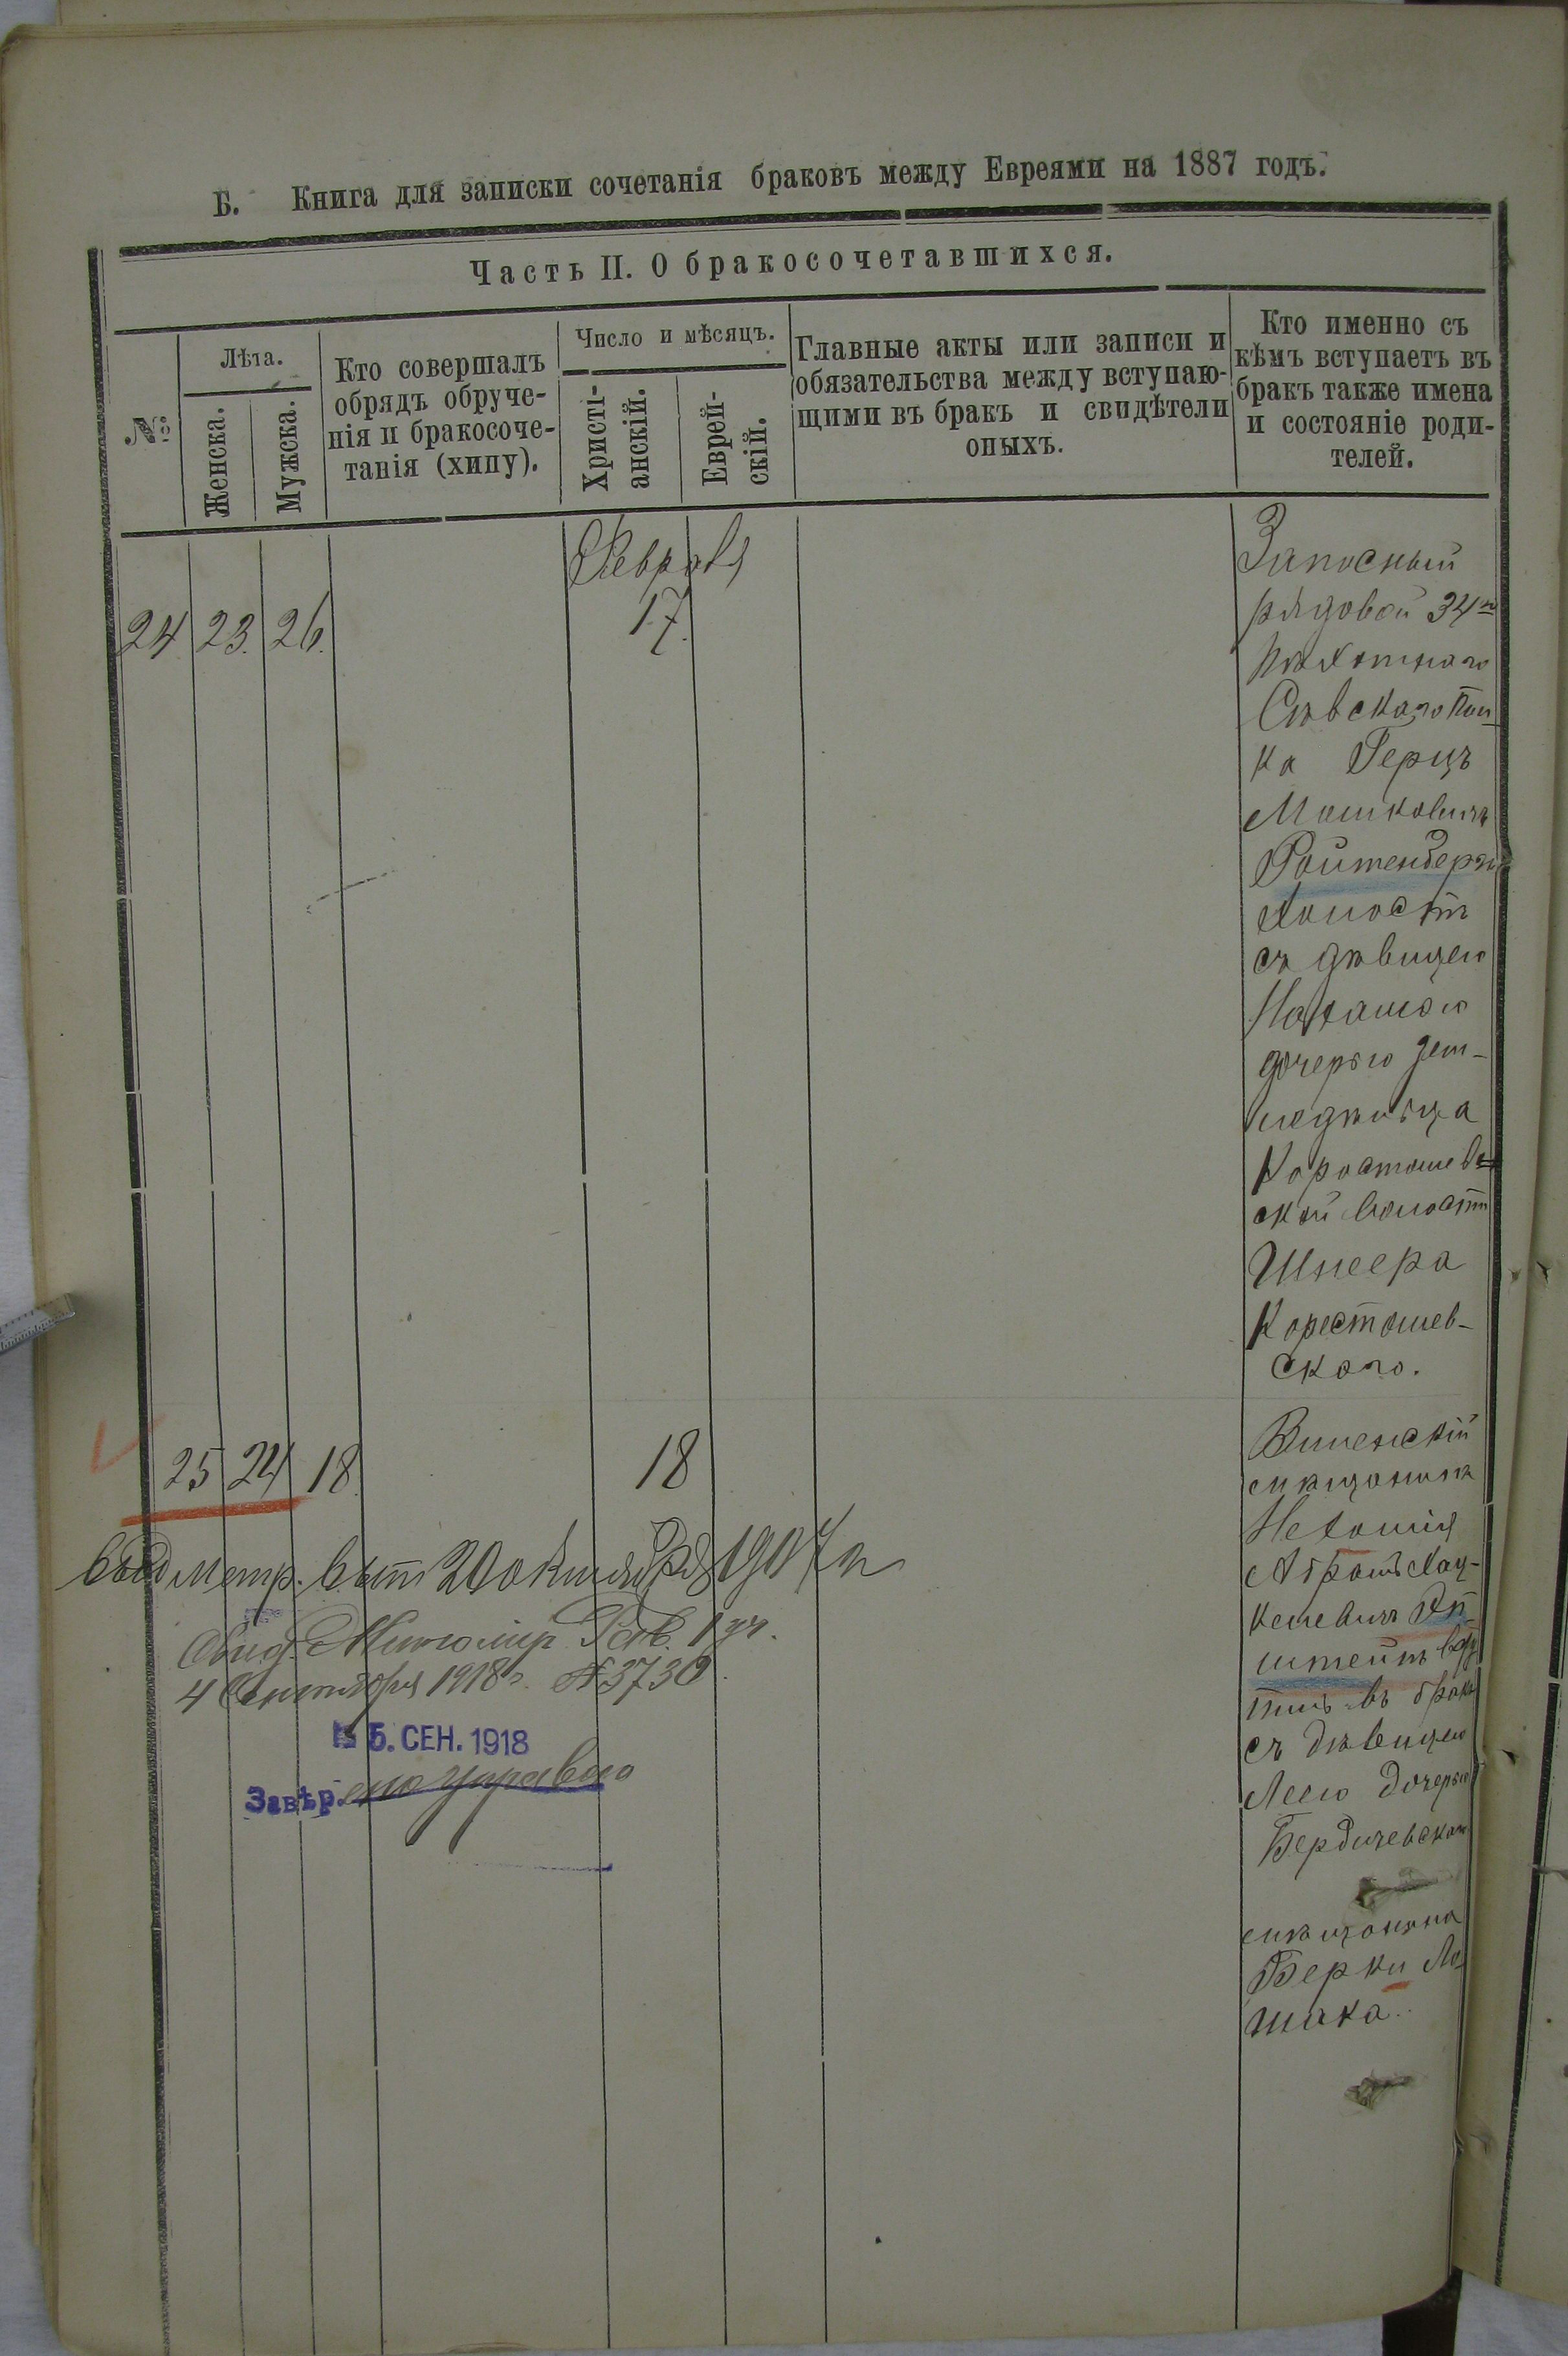 Б. Книга для записки сочетанія браковъ между Евреями на 1887 годъ.
Часть II. О бракосочетавшихся.
№
Лѣта.
Женска.
Мужска.
Кто совершалъ
обрядъ обруче-
нія и бракосоче-
танія (хипу).
Число и мѣсяцъ.
Христі-
анскій.
Еврей-
скій.
Главные акты или записи и
обязательства между вступаю-
щими въ бракъ и свидѣтели
оныхъ.
Кто именно съ
кѣмъ вступаетъ въ
бракъ также имена
и состояніе роди-
телей.
Февраля
24 23. 26. 17.
Запасный
рядовой 34го
пѣхотнаго
Сѣвскаго пол
ка Герцъ
Мошковичъ
Ройтенбергъ
холостъ
съ дѣвицею
дочерью зем-
ледѣльца
Коростышев
ской волости
Шнеера
Коростышев-
скаго.
25 24 18 18
мѣщанинъ
Нехемія
Абрамъ Хац-
келевичъ Эп
штейнъ
въ бракъ
съ дѣвицею
Леею дочерью
Бердичевскаго
мѣщанина
Берки Ло
шака.
метр. 20 октября 1907 г
4 Сентября 1918 г. № 3730.
5. СЕН. 1918
Завѣр.